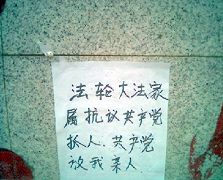 法轮大法家
属抗议共产党
抓人.共产党
放我亲人